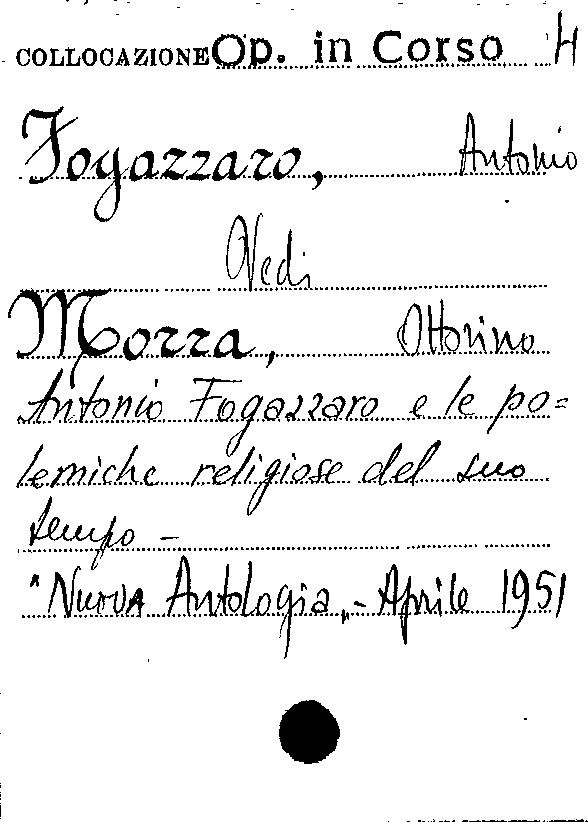 COLLOCAZIONE Op. in Corso H
Fogazzaro, Antonio
Vedi
Morra, Ottorino
Antonio Fogazzaro e le po=
lemiche religiose del suo
tempo -
"Nuova Antologia„ - Aprile 1951